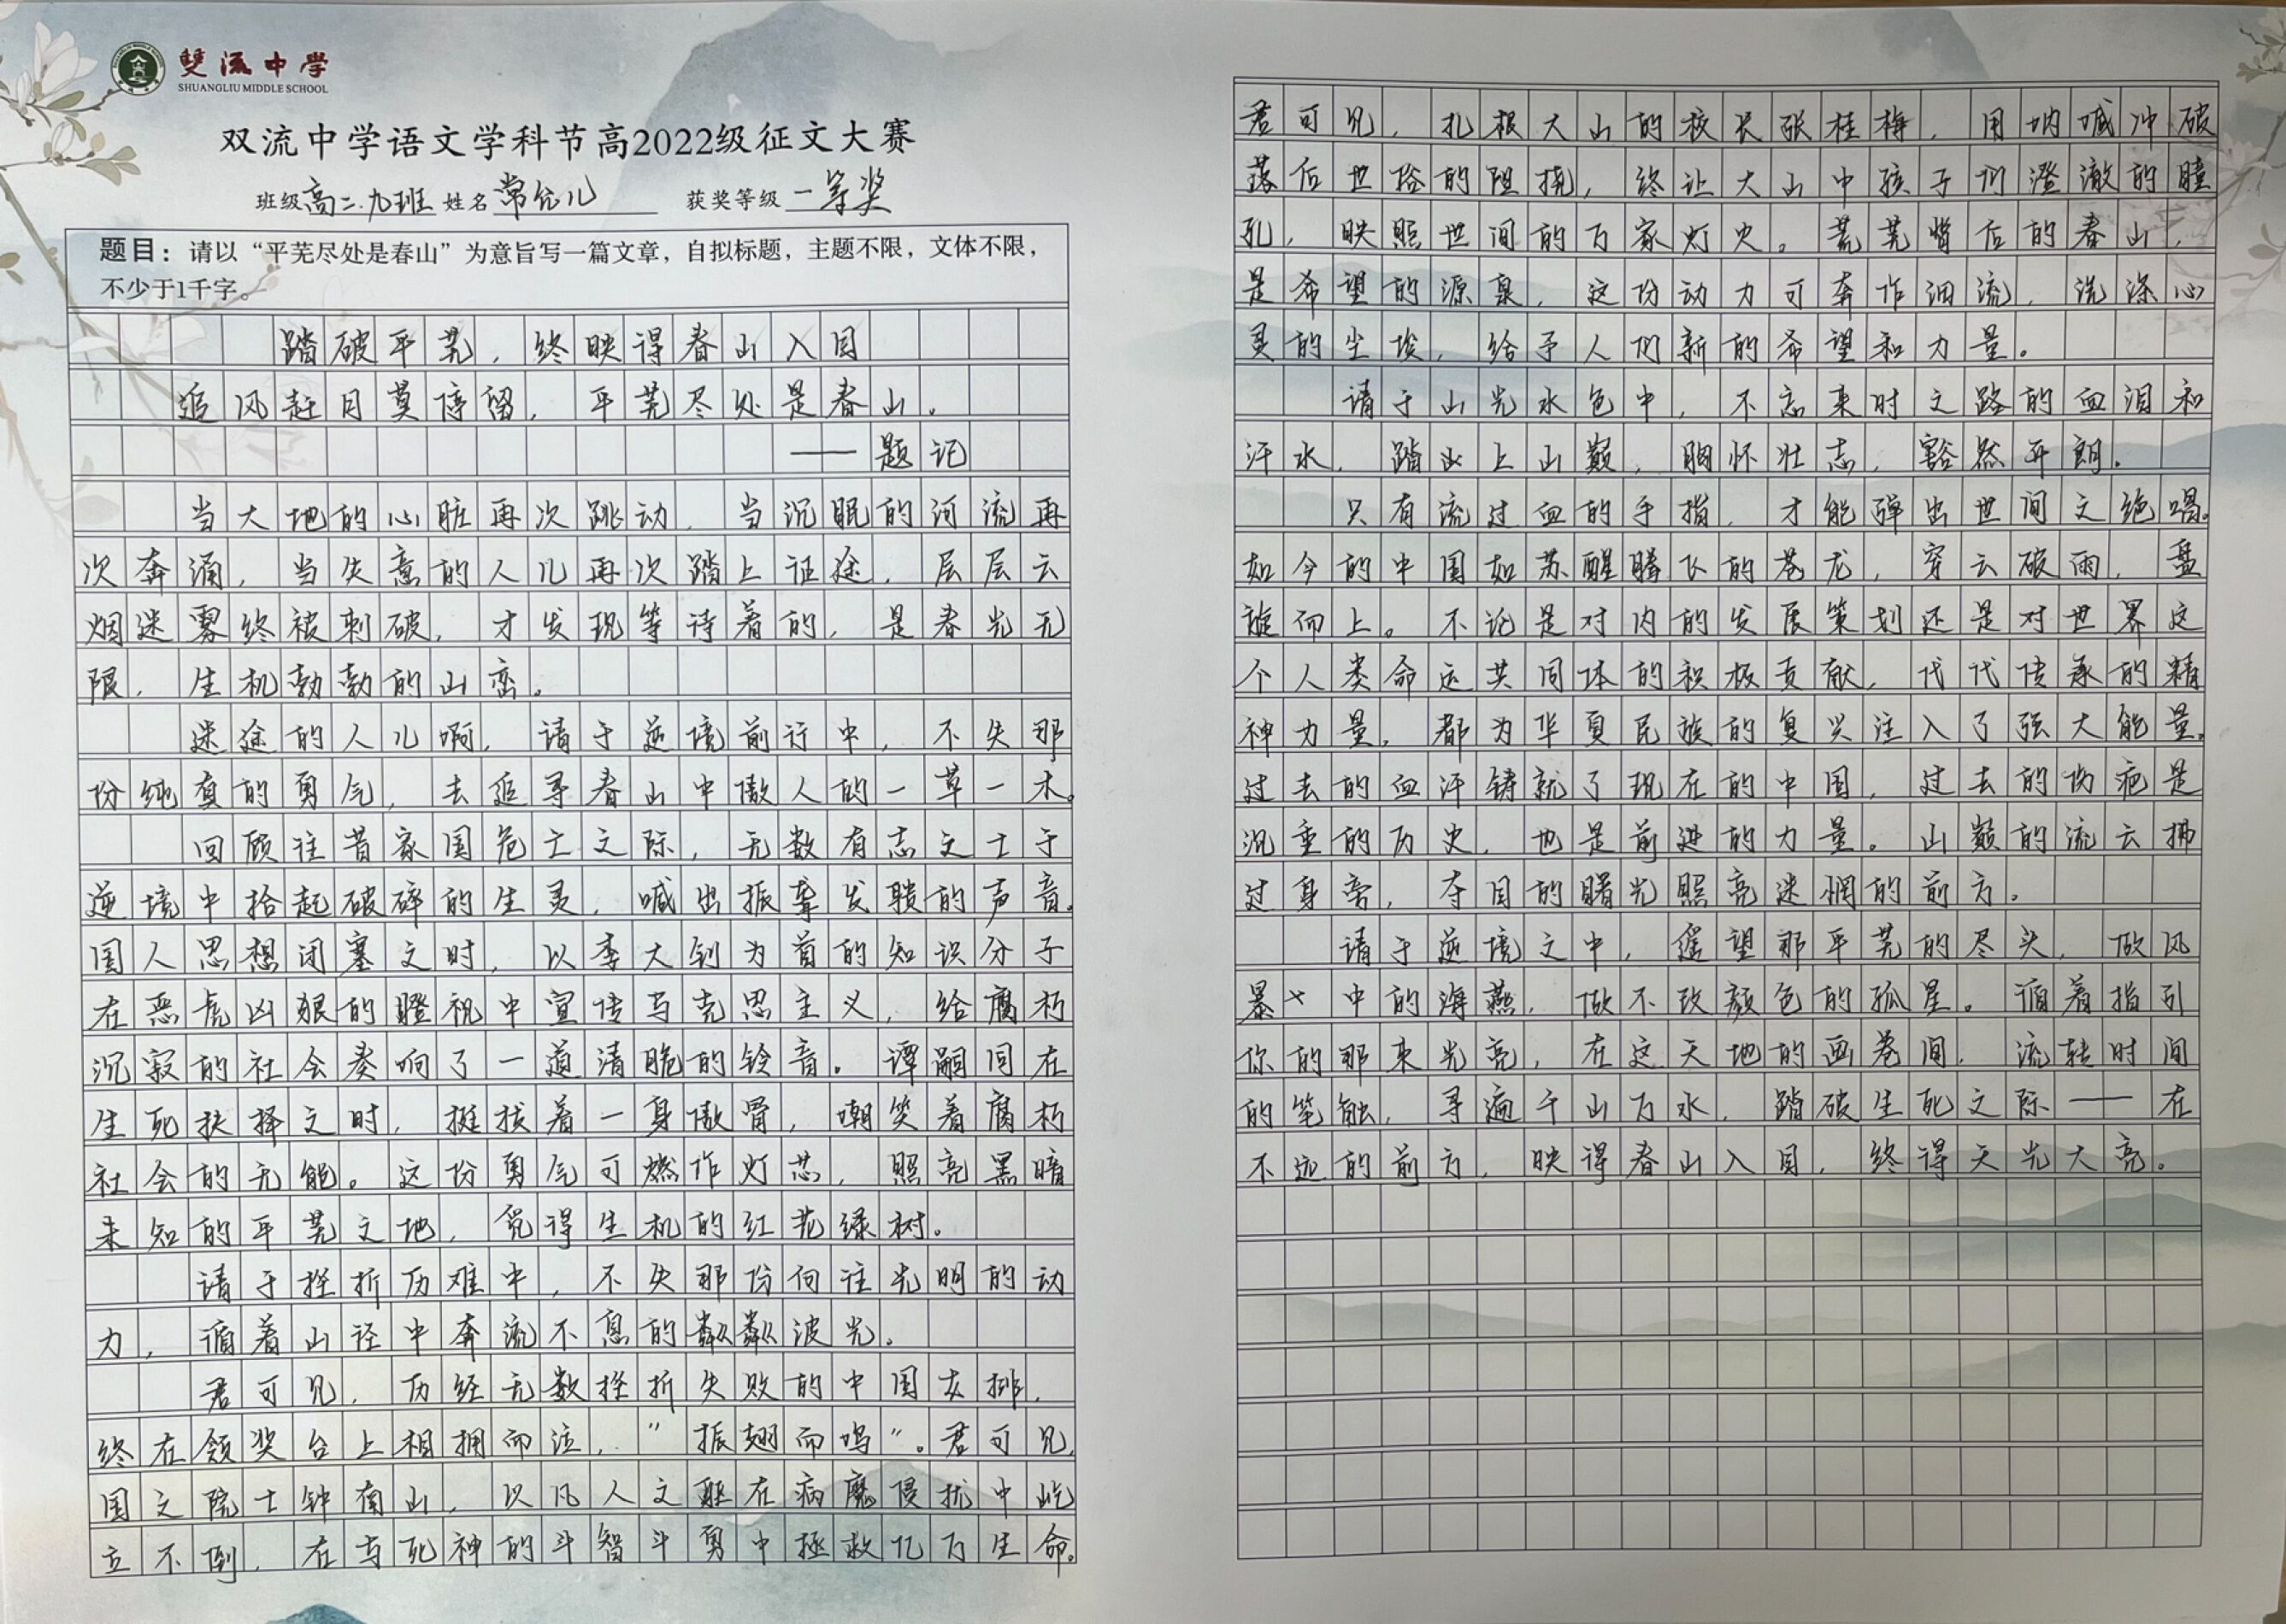 雙流中學
SHUANGLIU MIDDLE SCHOOL
双流中学语文学科节高2022级征文大赛
班级高二.九班 姓名常允儿 获奖等级一等奖
题目：请以“平芜尽处是春山”为意旨写一篇文章，自拟标题，主题不限，文体不限，
不少于1千字。
踏破平芜，终映得春山入目
追风赶月莫停留，平芜尽处是春山。
——题记
当大地的心脏再次跳动，当沉眠的河流再
次奔涌，当失意的人儿再次踏上征途，层层云
烟迷雾终被刺破，才发现等待着的，是春光无
限，生机勃勃的山峦。
迷途的人儿啊，请于逆境前行中，不失那
份纯真的勇气，去追寻春山中傲人的一草一木。
回顾往昔家国危亡之际，无数有志之士于
逆境中拾起破碎的生灵，喊出振聋发聩的声音。
国人思想闭塞之时，以李大钊为首的知识分子
在恶虎凶狠的瞪视中宣传马克思主义，给腐朽
沉寂的社会奏响了一道清脆的铃音。谭嗣同在
生死抉择之时，挺拔着一身傲骨，嘲笑着腐朽
社会的无能。这份勇气可燃作灯芯，照亮黑暗
未知的平芜之地，觅得生机的红花绿树。
请于挫折历难中，不失那份向往光明的动
力，循着山径中奔流不息的粼粼波光。
君可见，历经无数挫折失败的中国女排，
终在领奖台上相拥而泣，“振翅而鸣”。君可见，
国之院士钟南山，以凡人之躯在病魔侵扰中屹
立不倒，在与死神的斗智斗勇中拯救亿万生命。
君可见，扎根大山的校长张桂梅，用呐喊冲破
落后世俗的阻挠，终让大山中孩子们澄澈的瞳
孔，映照世间的万家灯火。荒芜背后的春山，
是希望的源泉，这份动力可奔作汩流，洗涤心
灵的尘埃，给予人们新的希望和力量。
请于山光水色中，不忘来时之路的血泪和
汗水，踏山上山巅，胸怀壮志，豁然开朗。
只有流过血的手指，才能弹出世间之绝唱。
如今的中国如苏醒腾飞的苍龙，穿云破雨，盘
旋而上。不论是对内的发展策划还是对世界这
个人类命运共同体的积极贡献，代代传承的精
神力量，都为华夏民族的复兴注入了强大能量。
过去的血汗铸就了现在的中国，过去的伤疤是
沉重的历史，也是前进的力量。山巅的流云拂
过身旁，夺目的曙光照亮迷惘的前方。
请于逆境之中，遥望那平芜的尽头，做风
暴中的海燕，做不改颜色的孤星。循着指引
你的那束光亮，在这天地的画卷间，流转时间
的笔触，寻遍千山万水，踏破生死之际——在
不远的前方，映得春山入目，终得天光大亮。